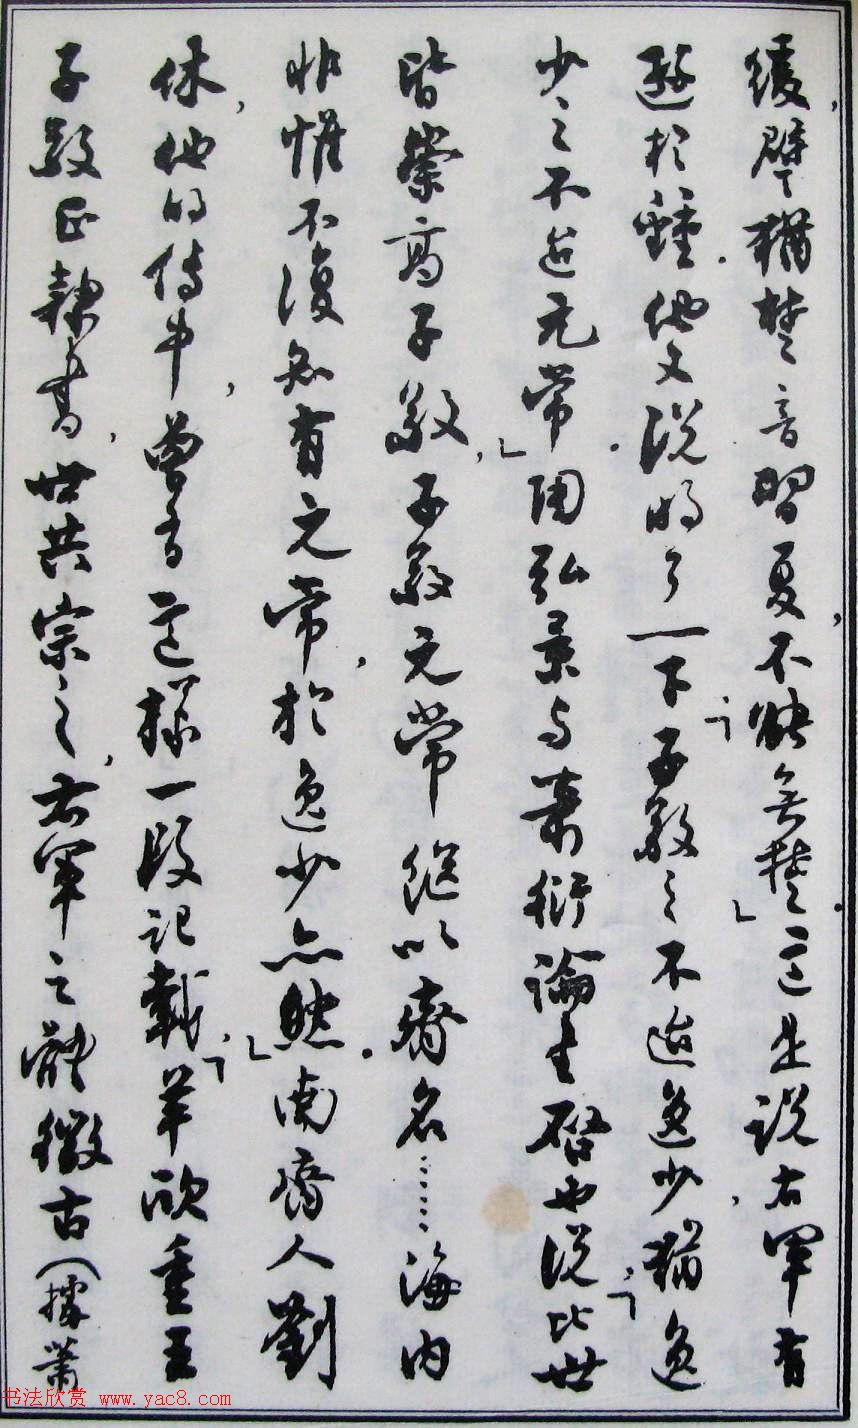 缓，譬犹楚音習夏，不能無楚」。這是说，右軍有
遜於鍾。他又说明了一下「子敬之不逮逸少，猶逸
少之不逮元常」。陶弘景与萧衍論書啓也说「比世
皆崇高子敬，子敬、元常继以齊名……海内
非惟不復知有元常，於逸少亦然」。南齊人劉
休，他的傳中，曾有這樣一段记載「羊欣重王
子敬正隸書，世共宗之，右軍之體微古（據萧
书法欣赏 www.yac8.com